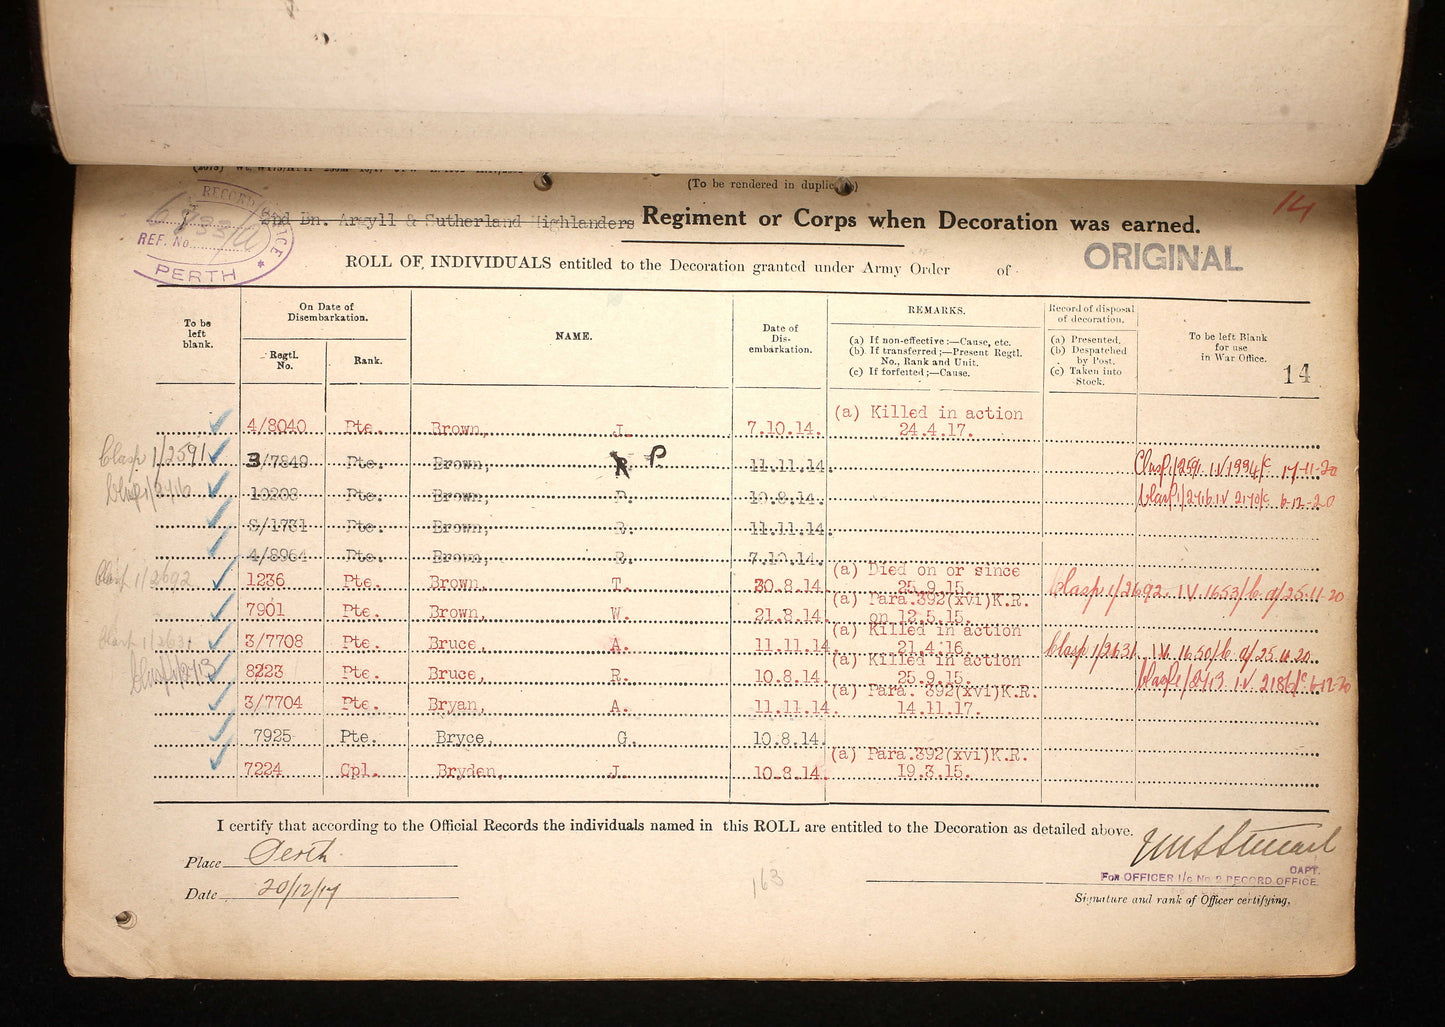 (To be rendered in duplicate)
14
RECORD OFFICE
REF. No.
PERTH
2nd Bn. Argyll & Sutherland Highlanders Regiment or Corps when Decoration was earned.
ORIGINAL
ROLL OF INDIVIDUALS entitled to the Decoration granted under Army Order of
To be left blank.
On Date of Disembarkation.
Regtl. No.
Rank.
NAME.
Date of Dis-embarkation.
REMARKS.
(a) If non-effective:—Cause, etc.
(b) If transferred;—Present Regtl. No., Rank and Unit.
(c) If forfeited;—Cause.
Record of disposal of decoration.
(a) Presented.
(b) Despatched by Post.
(c) Taken into Stock.
To be left Blank for use in War Office.
14
4/8040 Pte. Brown, J. 7.10.14. (a) Killed in action 24.4.17.
clasp 1/2591 3/7849 Pte. Brown, P 11.11.14. Clasp 1/2591 IV 1994/c 17-11-20
clasp 1/2416 10208 Pte. Brown, 10.8.14. clasp 1/2416 IV 2170/c 6-12-20
Pte. Brown, R. 11.11.14.
4/8964 Pte. Brown, R. 7.10.14.
clasp 1/2692 1236 Pte. Brown, T. 30.8.14. (a) Died on or since 25.9.15. clasp 1/2692 IV 1653/b d/25-11-20
7901 Pte. Brown, W. 21.8.14. (a) Para.392(xvi)K.R. on 12.5.15.
clasp 1/2631 3/7708 Pte. Bruce, A. 11.11.14. (a) Killed in action 21.4.16. clasp 1/2631 IV 1650/b d/25.11.20
8223 Pte. Bruce, R. 10.8.14. (a) Killed in action 25.9.15. 6-12-20
3/7704 Pte. Bryan, A. 11.11.14. (a) Para. 392(xvi)K.R. 14.11.17.
7925 Pte. Bryce, G. 10.8.14.
7224 Cpl. Bryden, J. 10.8.14. (a) Para.392(xvi)K.R. 19.3.15.
I certify that according to the Official Records the individuals named in this ROLL are entitled to the Decoration as detailed above.
Place Perth.
CAPT.
For OFFICER I/c No 2 RECORD OFFICE.
Date 20/12/17
163
Signature and rank of Officer certifying,